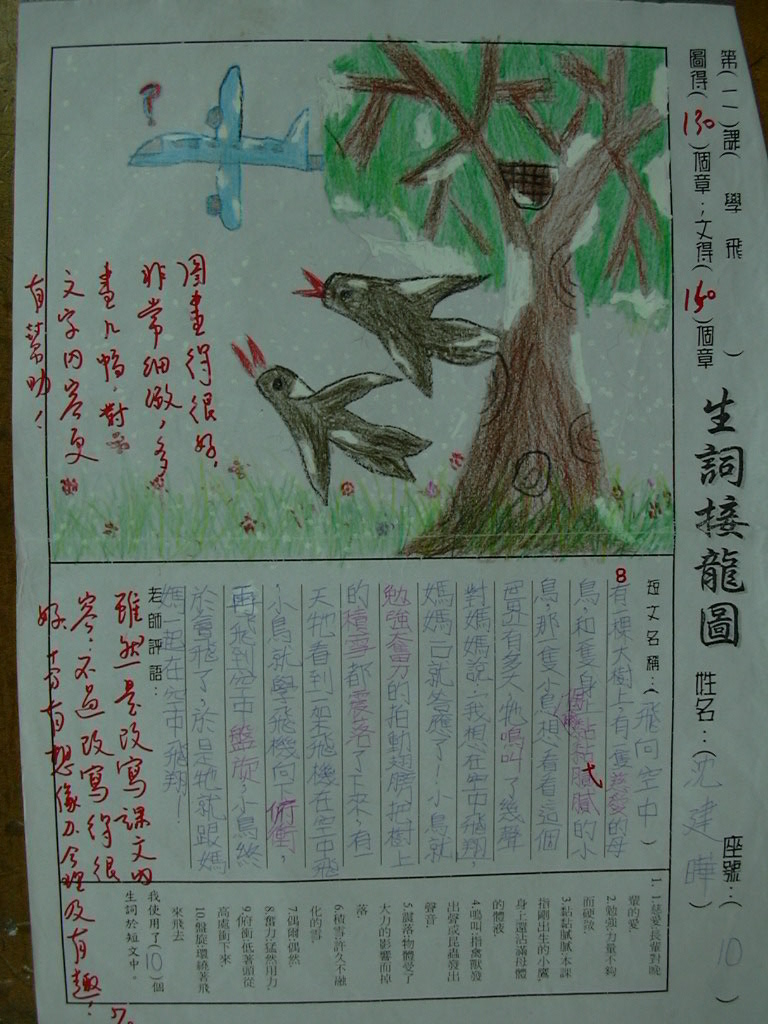 第(二)課( 學 飛 )
圖得(130)個章;文得(150)個章
生詞接龍圖 姓名:(沈建曄) 座號:(10)
?
圖畫得很好,
非常細緻,多
畫几幅,對
文字內容更
有幫助!
短文名稱:(飛向空中)
8
有一棵大樹上,有一隻慈愛的母
鳥,和隻身上黏黏膩膩的小
鳥,那隻小鳥想看看這個
世界有多大,牠鳴叫了幾聲
對媽媽說:我想在空中飛翔,
媽媽一口就答應了!小鳥就
勉強奮力的拍動翅膀把樹上
的積雪都震落了下來,有一
天牠看到一架飛機在空中飛
,小鳥就學飛機向下俯衝,
再飛到空中盤旋,小鳥終
於會飛了,於是牠就跟媽
媽一起在空中飛翔!
老師評語:
雖然是改寫課文內
容:不過改寫得很
好,十分有想像力合理及有趣!
1.慈愛:長輩對晚
輩的愛.
2.勉強:力量不夠
而硬做.
3.黏黏膩膩:本課
指剛出生的小鷹,
身上還沾滿母體
的體液
4.鳴叫:指禽獸發
出聲或昆蟲發出
聲音.
5.震落:物體受了
大力的影響而掉
落
6.積雪:許久不融
化的雪.
7.偶爾:偶然.
8.奮力:猛然用力.
9.俯衝:低著頭從
高處衝下來.
10.盤旋:環繞著飛
來飛去
我使用了(10)個
生詞於短文中。